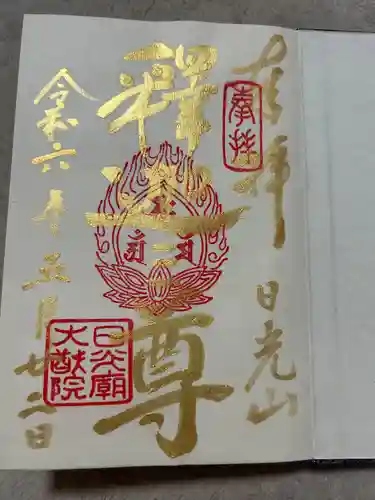 奉拝
奉拝
日光山
釋迦尊
令和六年五月廿二日
日光廟
大猷院